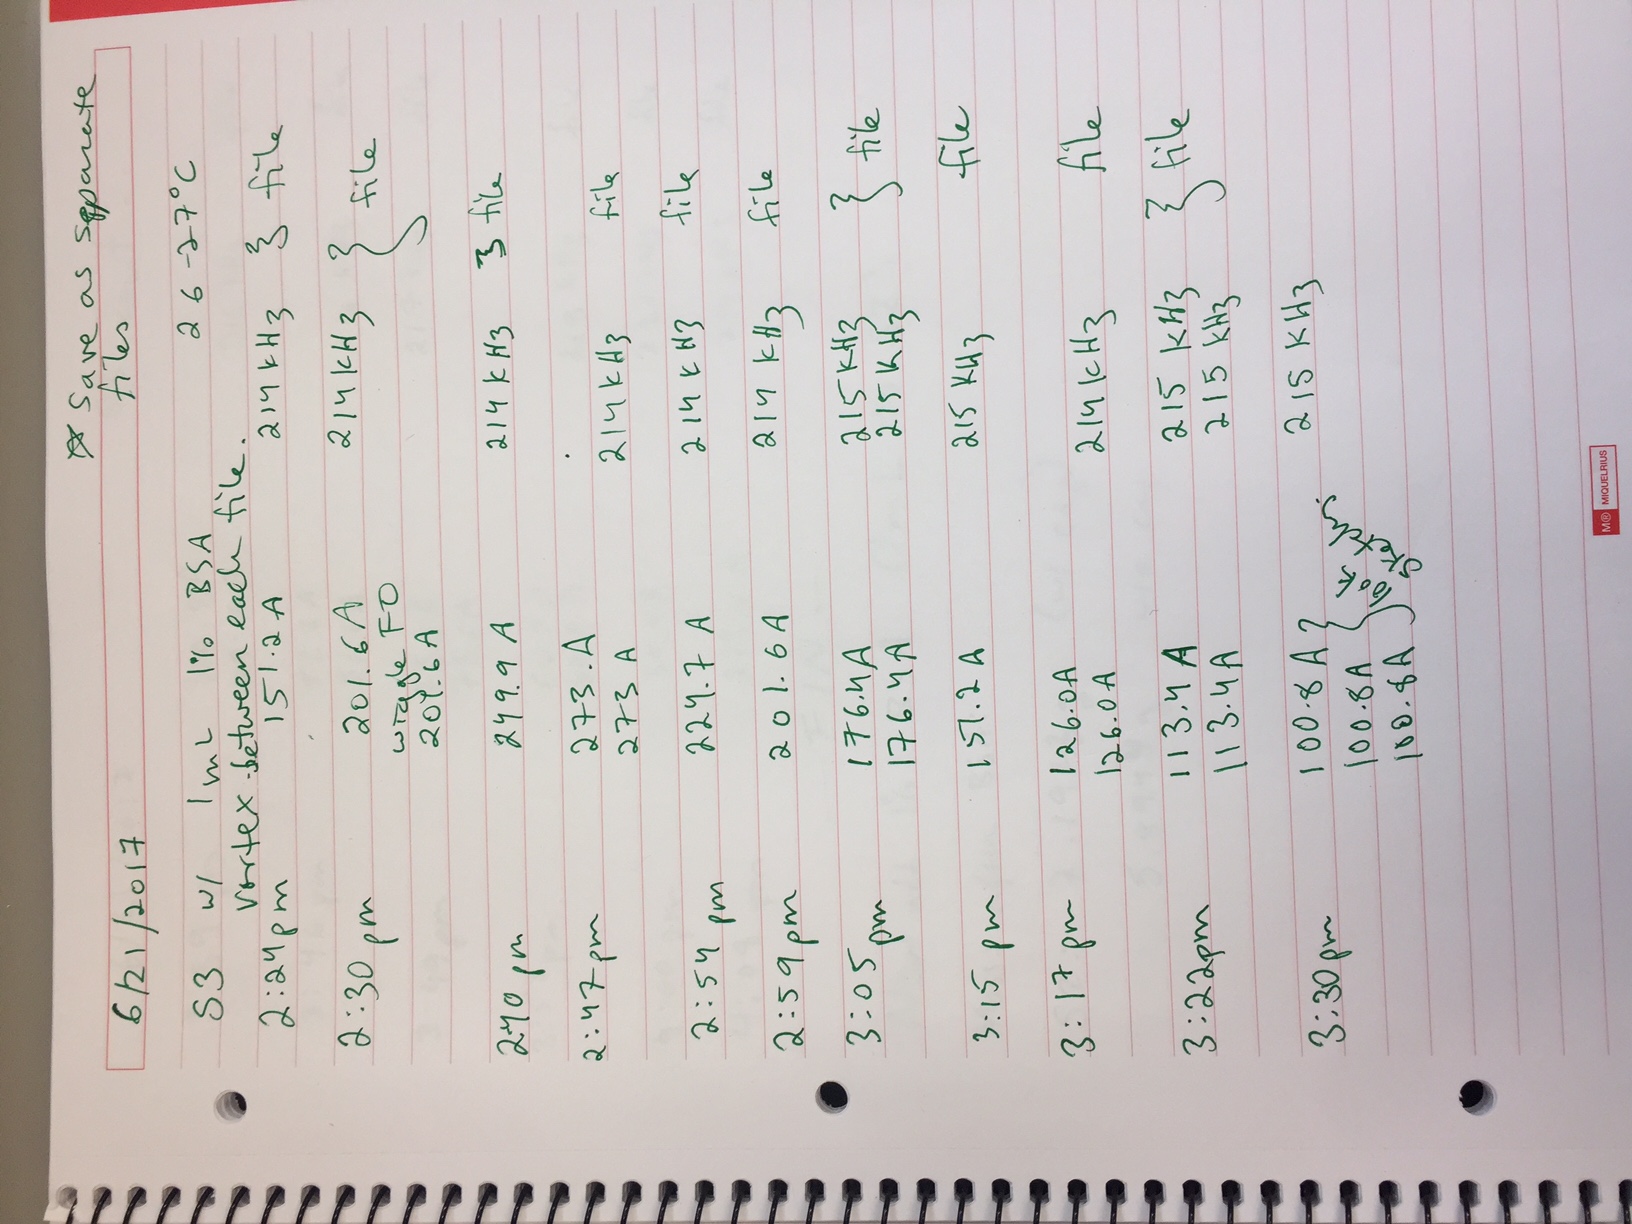 ☆ Save as separate
files
6/21/2017
S3 w/ 1mL 1% BSA 26-27°C
vortex between each file.
2:24pm 151.2 A 214 kHz } file
2:30 pm 201.6 A 214 kHz } file
wiggle FO
201.6 A
240 pm 249.9 A 214 kHz } file
2:47 pm 273. A
273 A 214 kHz file
2:54 pm 224.7 A 214 kHz file
2:59 pm 201.6 A 214 kHz file
3:05 pm 176.4 A 215 kHz } file
176.4 A 215 kHz
3:15 pm 151.2 A 215 kHz file
3:17 pm 126.0 A
126.0 A 214 kHz file
3:22pm 113.4 A 215 kHz } file
113.4 A 215 kHz
3:30pm 100.8 A } 215 kHz
100.8 A look
100.8 A sketchy.
M® MIQUELRIUS